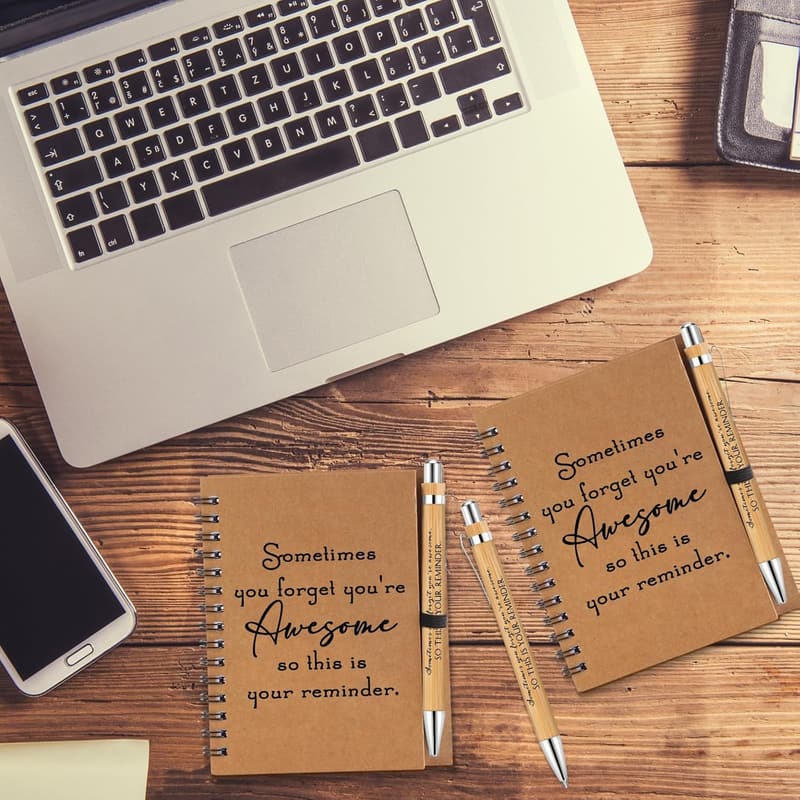 esc
Q W E R T Z U I O P
A S D F G H J K L
Y X C V B N M
fn ctrl
Sometimes
you forget you're
Awesome
so this is
your reminder.
Sometimes you forget you're awesome
SO THIS IS YOUR REMINDER
Sometimes you forget you're awesome
SO THIS IS YOUR REMINDER
Sometimes
you forget you're
Awesome
so this is
your reminder.
Sometimes you forget you're awesome
SO THIS IS YOUR REMINDER